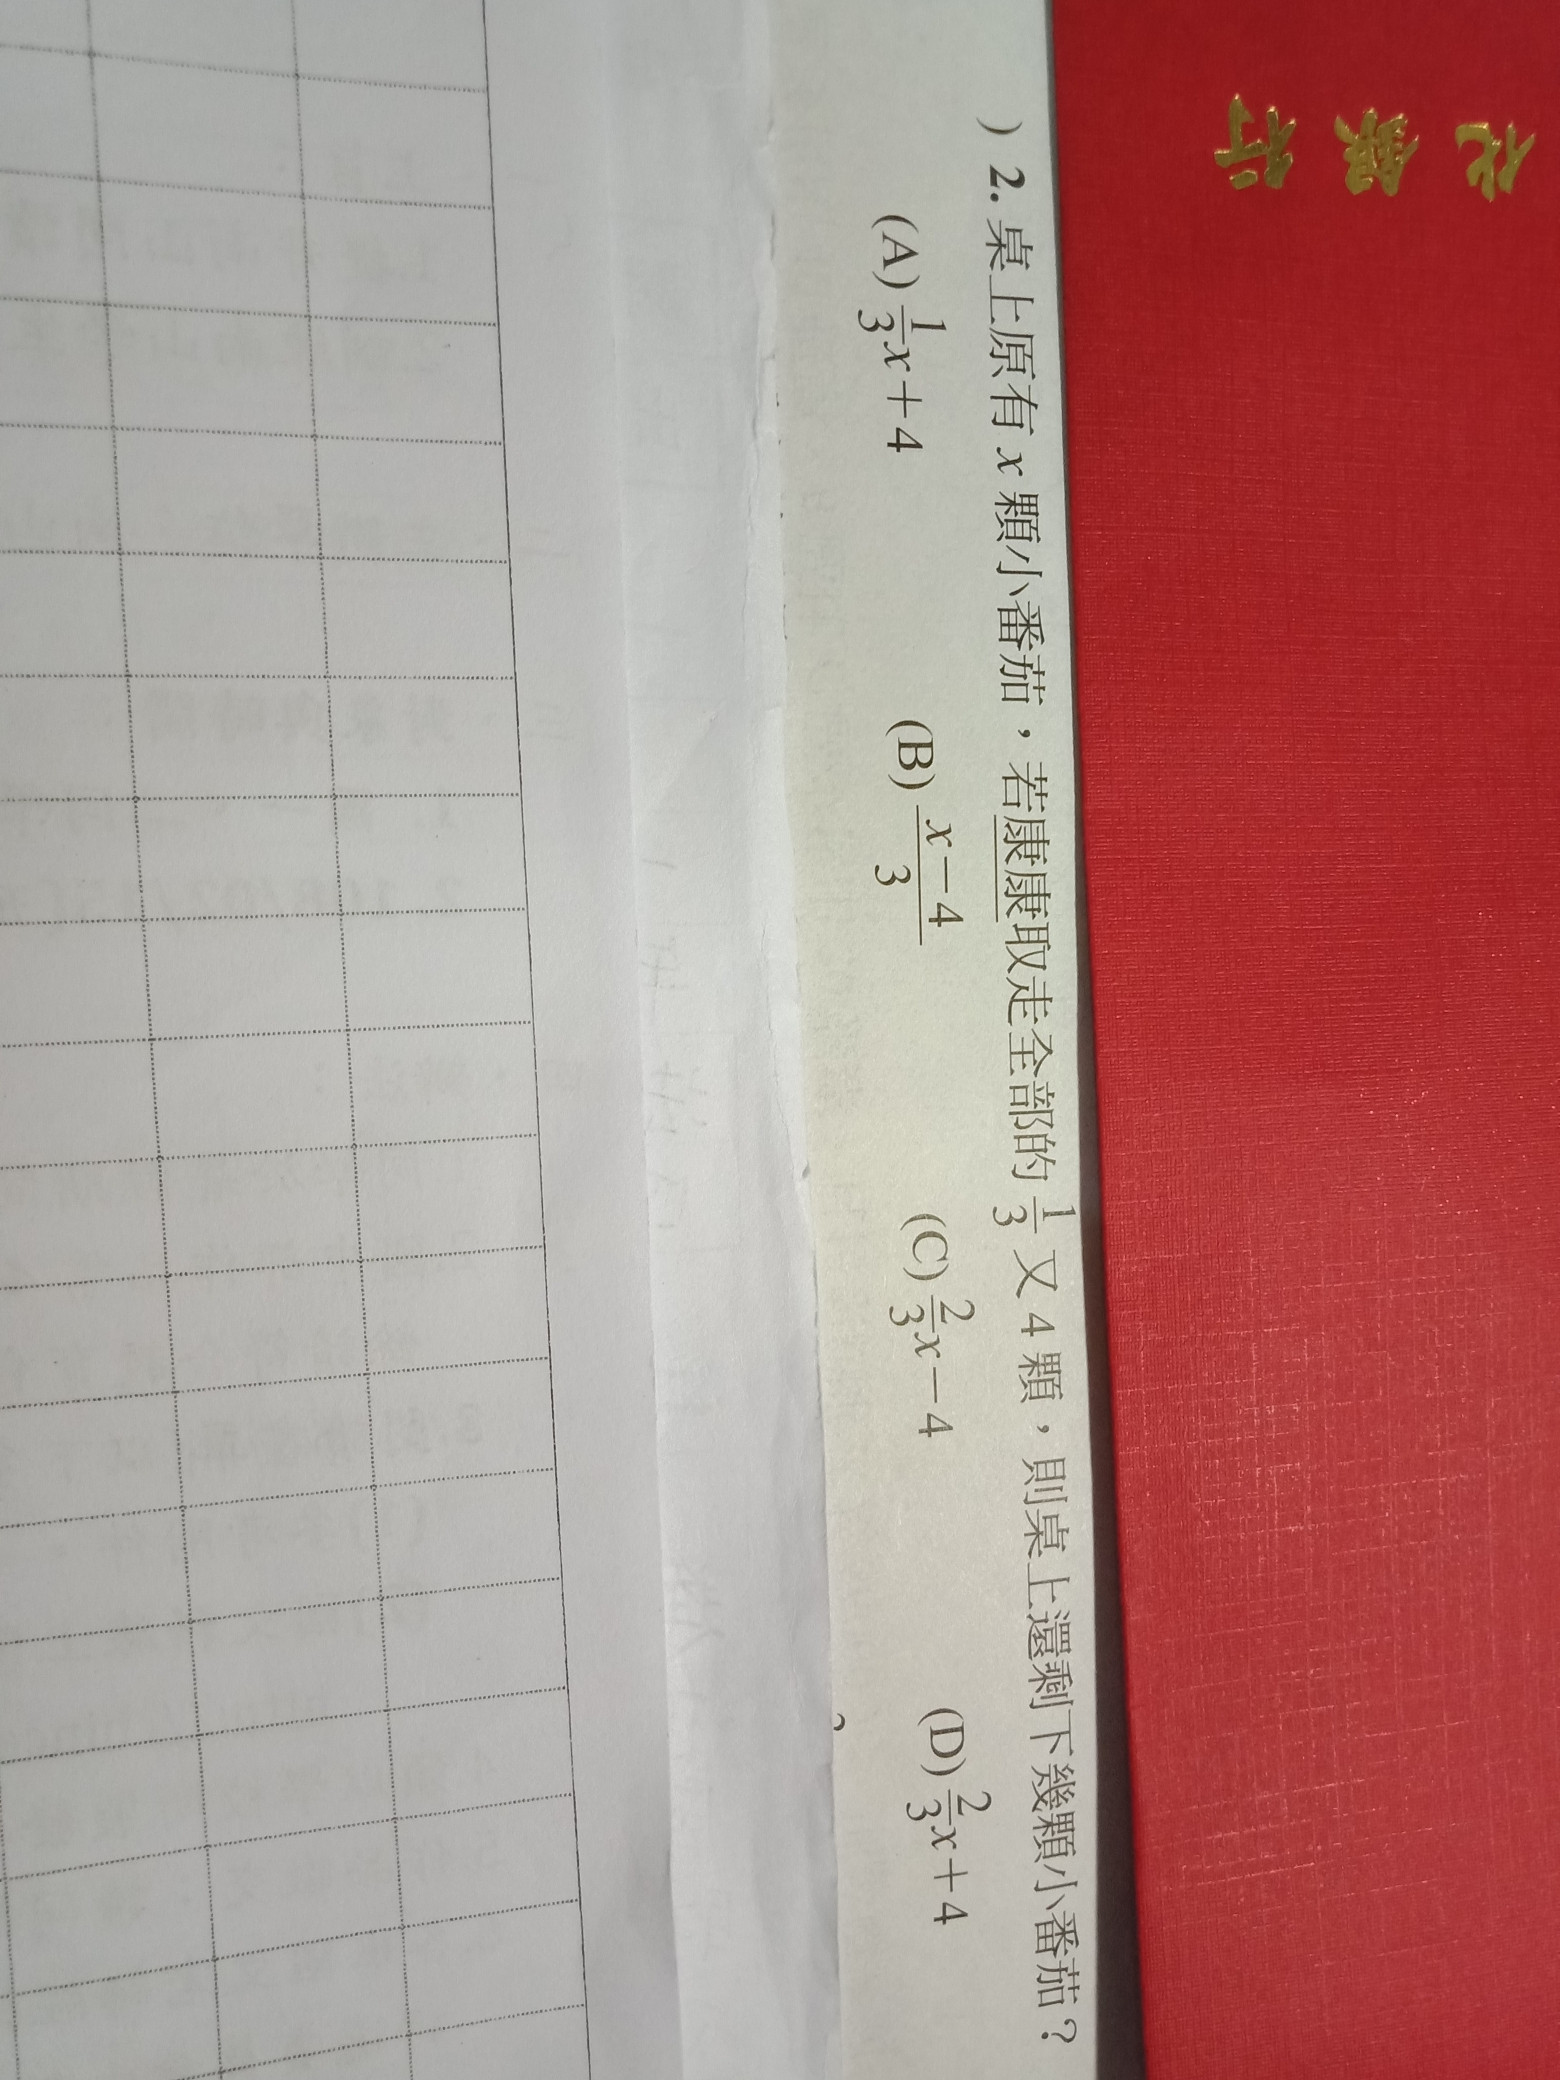 化銀行
) 2. 桌上原有 x 顆小番茄，若康康取走全部的 1/3 又 4 顆，則桌上還剩下幾顆小番茄？
(A) 1/3x＋4 (B) x－4/3 (C) 2/3x－4 (D) 2/3x＋4